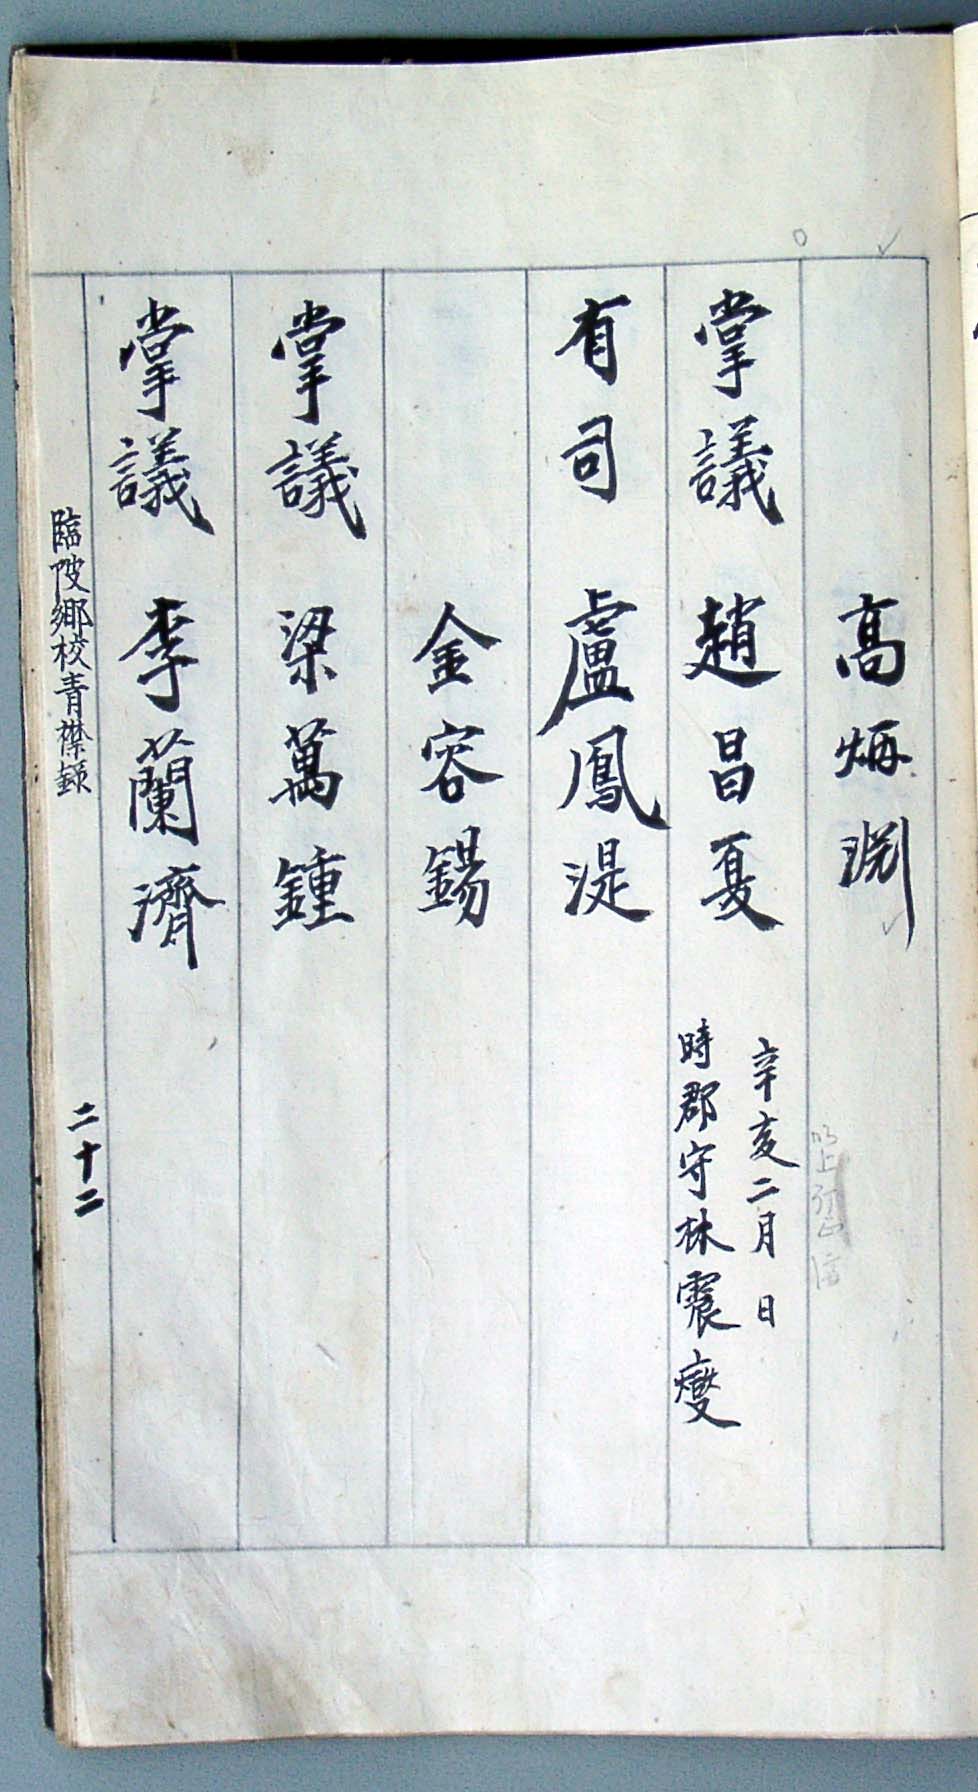 高炳渕
掌議 趙昌夏 辛亥二月 日
時郡守林震燮
有司 盧鳳湜
金容錫
掌議 梁萬鍾
掌議 李蘭濟
臨陂鄉校青襟録 二十二